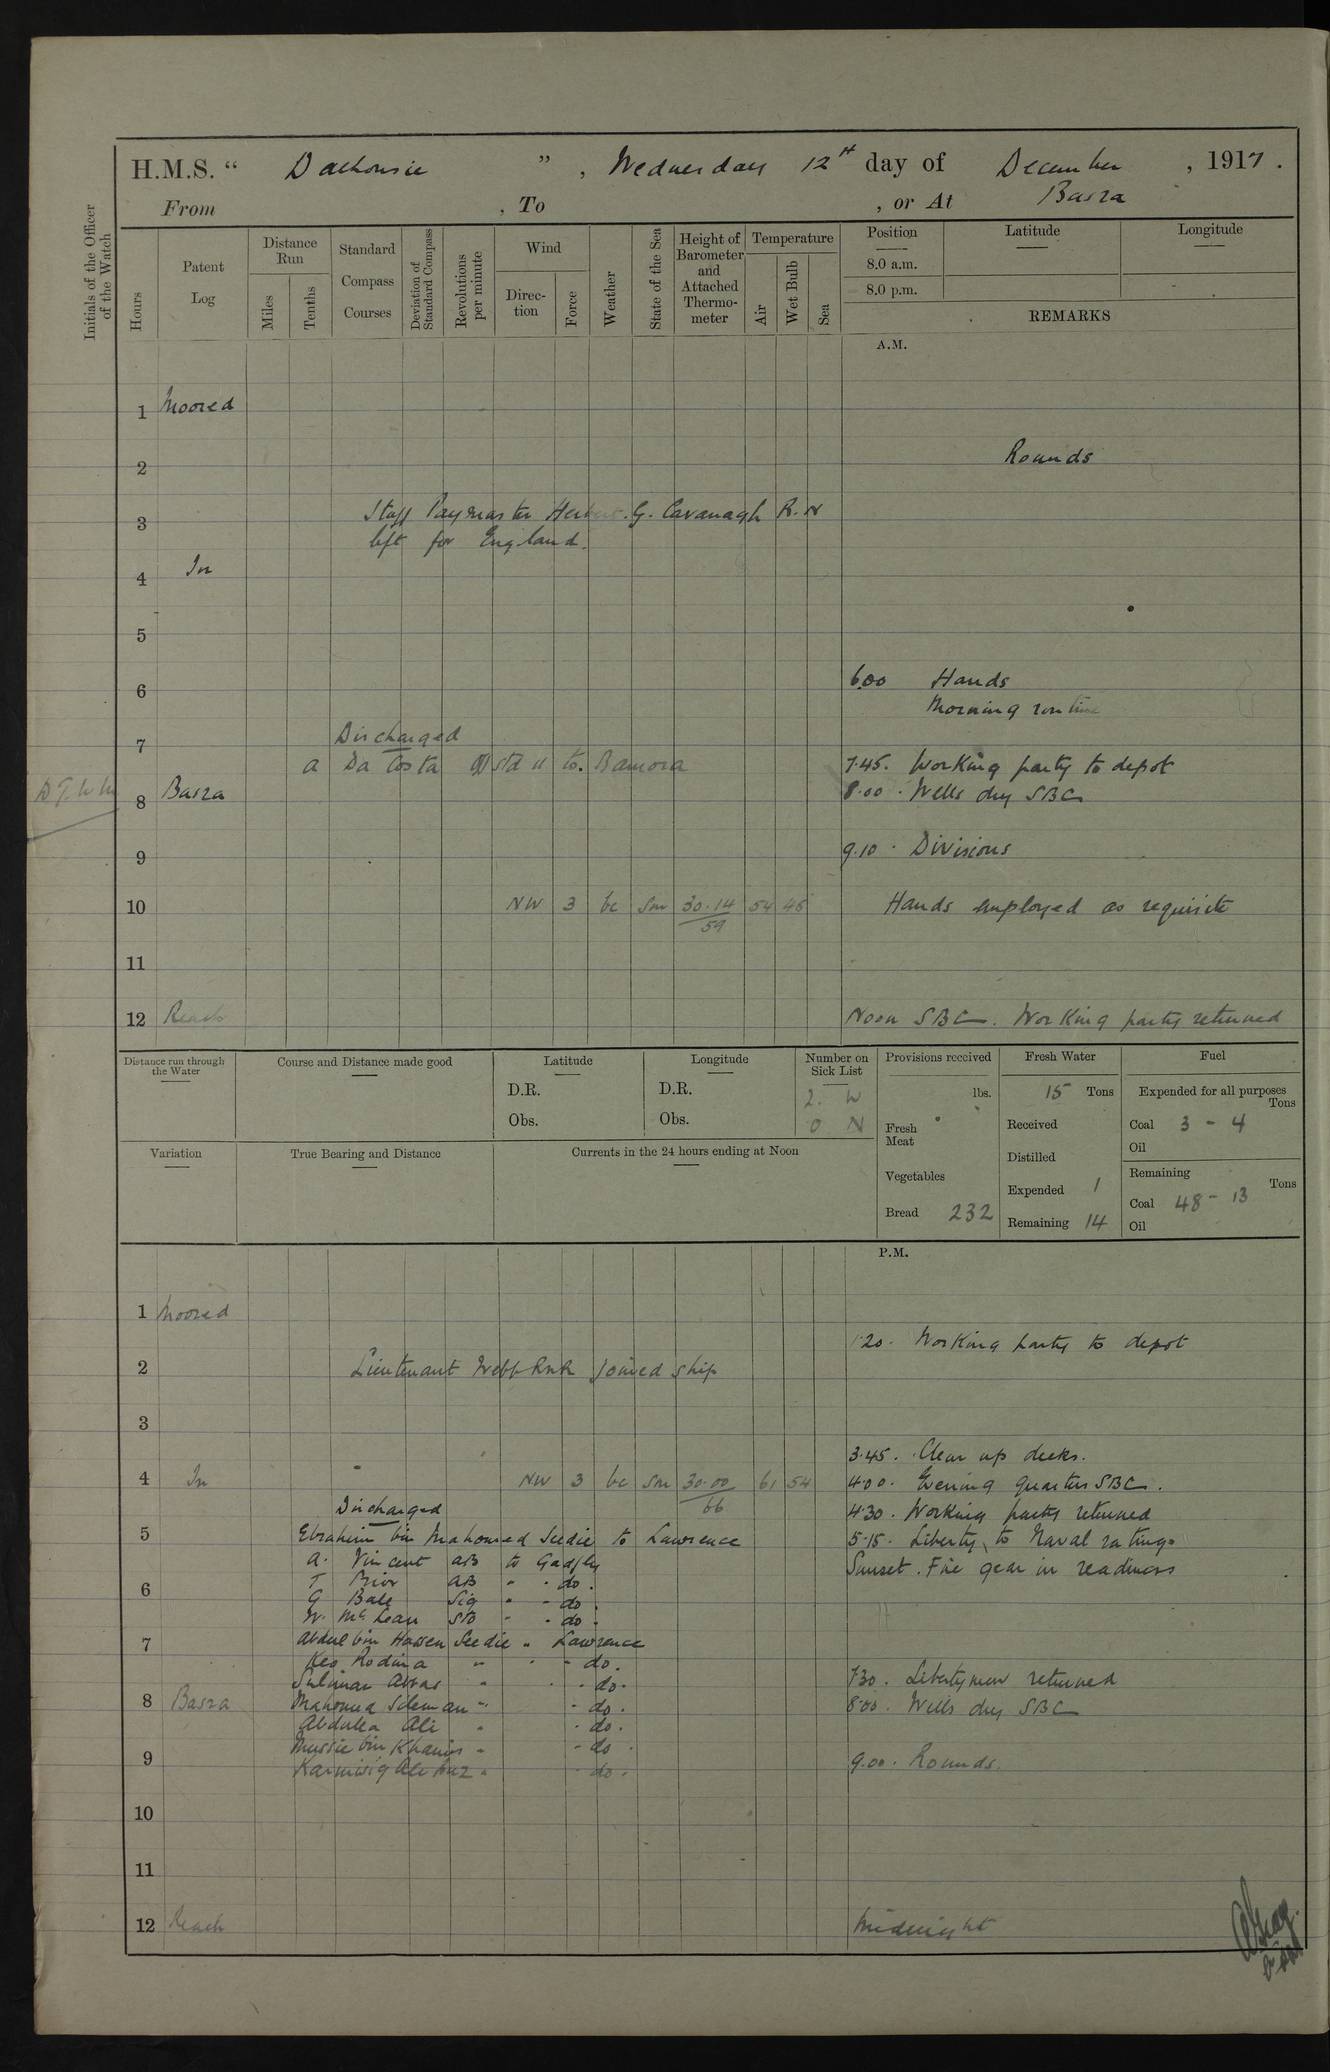 H.M.S. " Dalhousie ", Wednesday 12th day of December, 1917.
From , To , or At Basra
Initials of the Officer of the Watch
Hours
Patent Log
Distance Run
Miles
Tenths
Standard Compass Courses
Deviation of Standard Compass
Revolutions per minute
Wind
Direction
Force
Weather
State of the Sea
Height of Barometer and Attached Thermometer
Temperature
Air
Wet Bulb
Sea
Position
8.0 a.m.
8.0 p.m.
Latitude
Longitude
REMARKS
A.M.
1 Moored
2 Rounds
3 Staff Paymaster G. Cavanagh R.N
left for England.
4 In
5
6 6.00 Hands
Morning routine
7 Discharged
a Da Costa to Bamora
7.45. Working party to depot
8 Basra 8.00. Wells dry SBC
9 9.10. Divisions
10 NW 3 bc Sm 30.14 54 48 Hands employed as requisite
59
11
12 Reach Noon SBC. Working party returned
Distance run through the Water
Course and Distance made good
Latitude
D.R.
Obs.
Longitude
D.R.
Obs.
Number on Sick List
2. W
0 N
Provisions received
lbs.
Fresh Meat
Vegetables
Bread 232
Fresh Water
15 Tons
Received
Distilled
Expended 1
Remaining 14
Fuel
Expended for all purposes
Tons
Coal 3 - 4
Oil
Remaining
Tons
Coal 48 - 13
Oil
Variation
True Bearing and Distance
Currents in the 24 hours ending at Noon
P.M.
1 Moored
1.20. Working party to depot
2 Lieutenant Webb RNR joined ship
3
3.45. Clear up decks.
4 In NW 3 bc Sm 30.00 61 54 4.00. Evening quarters SBC.
66
Discharged 4.30. Working party returned
5 Ebrahim bin Mahomed Seedie to Lawrence 5.15. Liberty to Naval ratings
A. Vincent AB to Gadfly Sunset. Fire gear in readiness
T Prior AB " " do.
6 G Bale Sig " " do.
W. McLean Sto " " do.
7 Abdul bin Hassen Seedie " Lawrence
Rodina " " " do.
Suliman " " " do. 7.30. Libertymen returned
8 Basra Mahomed Sileman " " do. 8.00. Wells dry SBC
Abdulla Ali " " do.
Mussie bin Khamis " " do.
9 " " do. 9.00. Rounds.
10
11
12 Reach Midnight